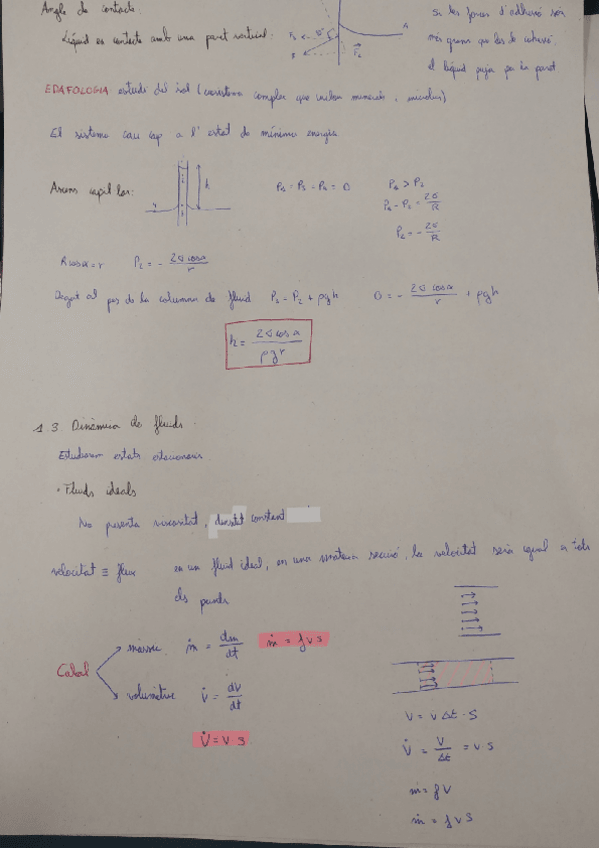 Angle de contacte.
Líquid es contacta amb una paret vertical:
Si les forces d'adhesió són
més grans que les de cohesió
el líquid puja per la paret
A
EDAFOLOGIA estudi del sòl (sistema complex que inclou minerals, microbis)
El sistema cau cap a l'estat de mínima energia
Ascens capil·lar:
h
P₀ > P₂
P₂ = - 2σ/R
R cosα = r P₂ = - 2σ cosα / r
Degut al pes de la columna de fluid P₀ = P₂ + ρgh 0 = - 2σ cosα / r + ρgh
h = 2σ cosα / ρ g r
1.3 Dinàmica de fluids
Estudiarem estats estacionaris
· Fluids ideals
No presenta viscositat, densitat constant
velocitat ≡ flux en un fluid ideal, en una mateixa secció, la velocitat serà igual a tots
els punts
Cabal
màssic ṁ = dm/dt ṁ = ρ v S
volumètric V̇ = dV/dt
V̇ = v S
V = v Δt · S
V̇ = V/Δt = v S
m = ρ V
ṁ = ρ v S